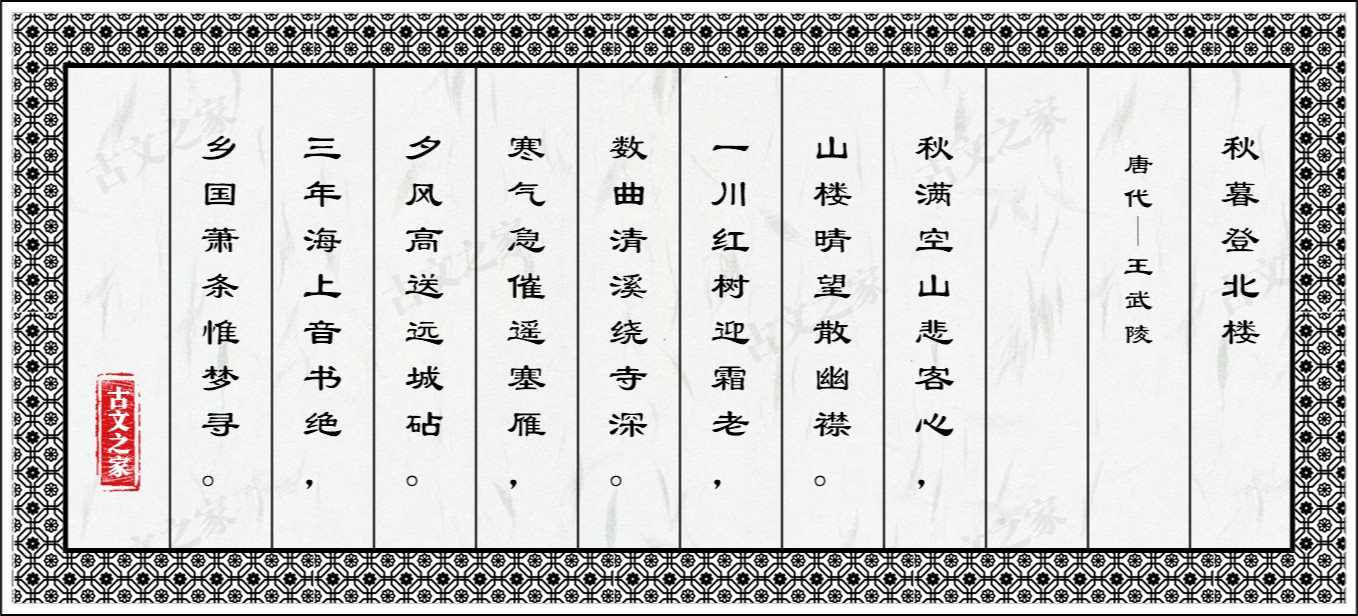 秋暮登北楼
唐代——王武陵
秋满空山悲客心，
山楼晴望散幽襟。
一川红树迎霜老，
数曲清溪绕寺深。
寒气急催遥塞雁，
夕风高送远城砧。
三年海上音书绝，
乡国萧条惟梦寻。
古文之家